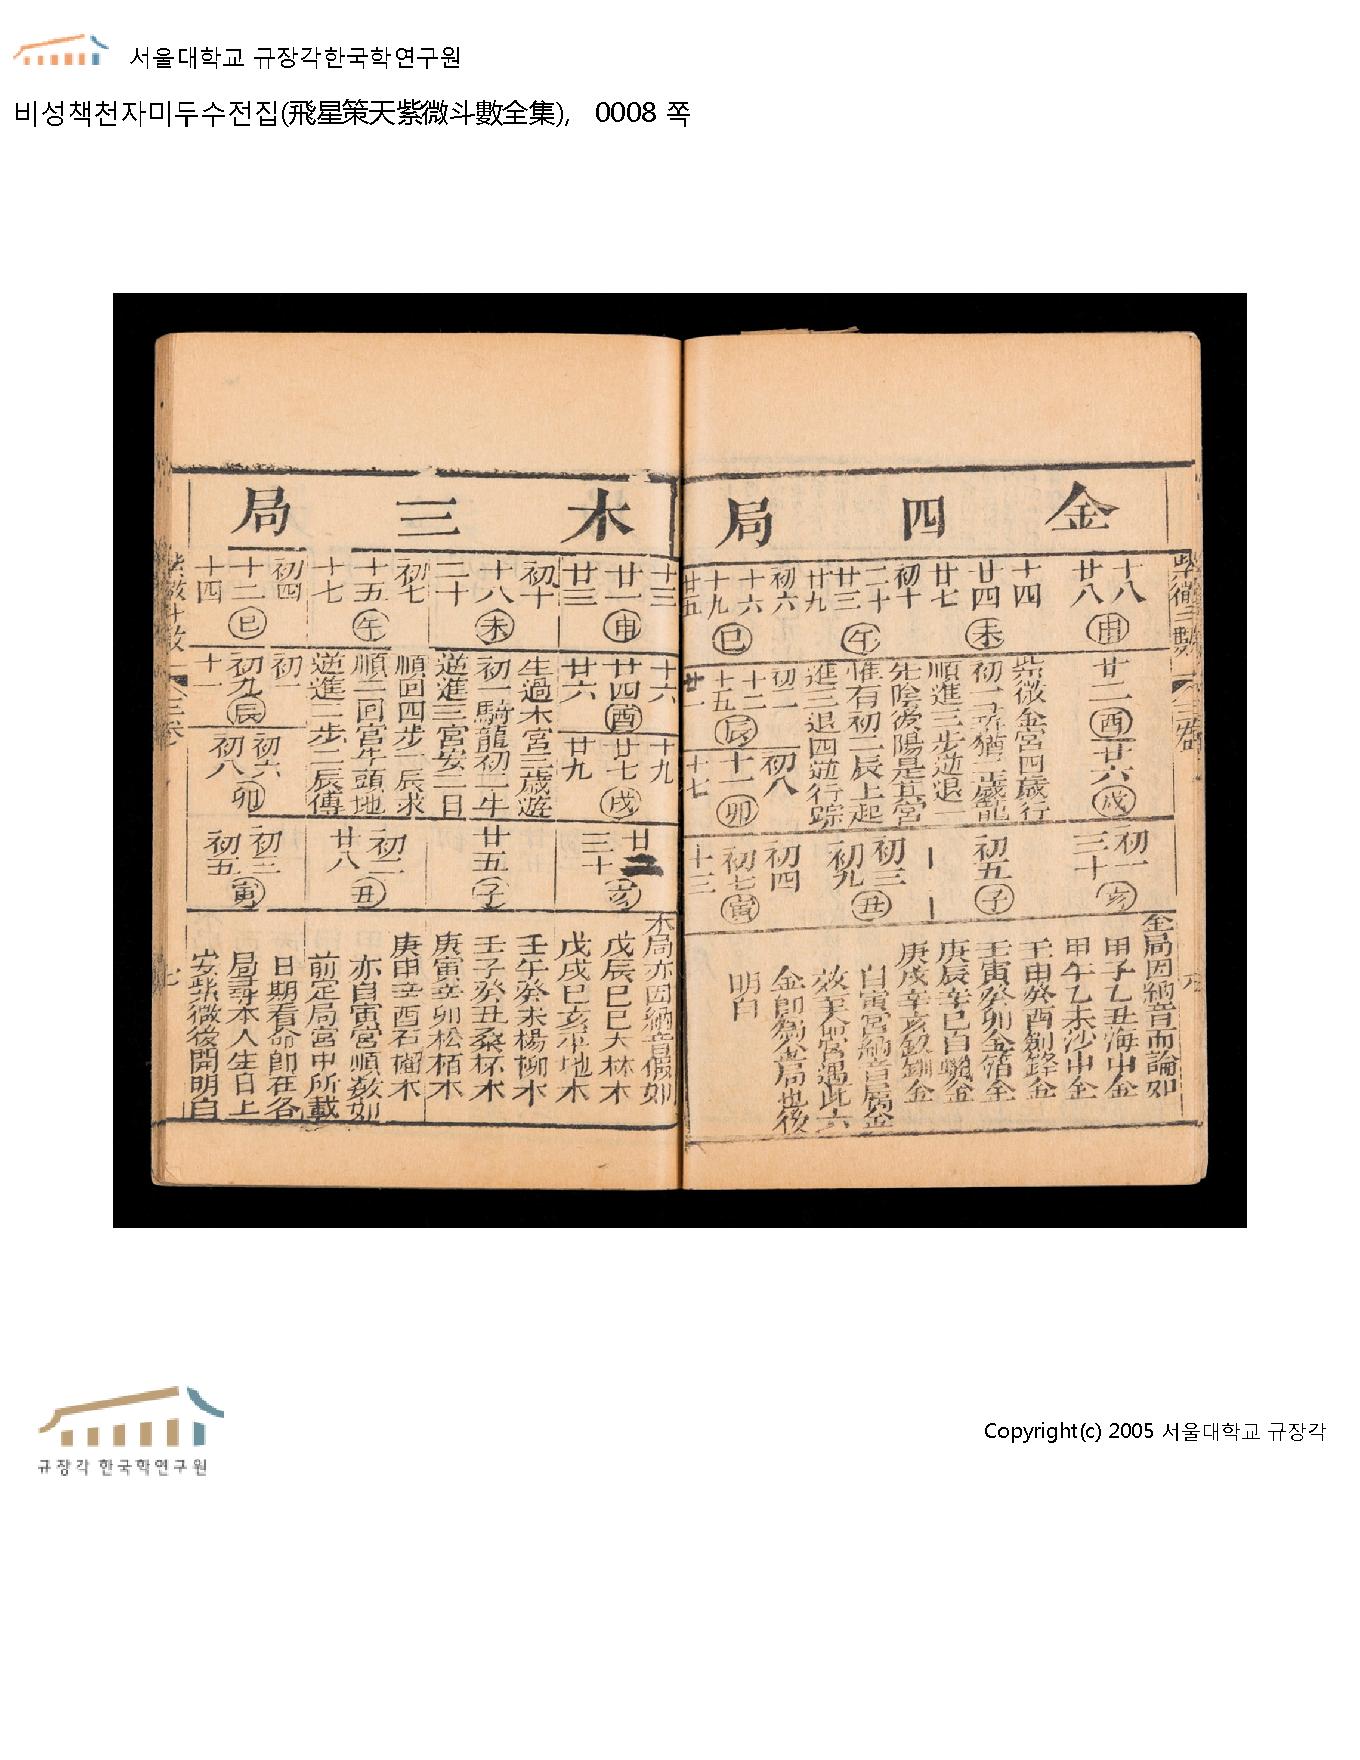 서울대학교 규장각한국학연구원
비성책천자미두수전집(飛星策天紫微斗數全集), 0008 쪽
金四局
十八
申
廿八
十四
廿四
未
廿七
初十
二十
午
廿三
廿九
初六
十六
巳
十九
廿五
廿二酉
廿六戌
紫微金宮四歲行
初一尋猪二歲龍
順進三步逆退一
先陰後陽是其宮
惟有初二辰上起
進三退四逆行踪
初二
十二
辰
十五
廿一
初八
十一卯
十七
初一
亥
三十
初五子
初三
丑
初九
初四
初七寅
十三
金局因納音而論如
甲子乙丑海中金
甲午乙未沙中金
壬申癸酉劍鋒金
壬寅癸卯金箔金
庚辰辛巳白蠟金
庚戌辛亥釵釧金
自寅宮納音屬金
命宮遇此六
金即 金局也後
明白
木三局
十三
廿一申
廿三
初十
十八未
二十
初七
十五午
十七
初四
十二巳
十四
十六
廿四酉
廿六
十九
廿七戌
廿九
生過木宮三歲遊
初一騎龍初二牛
逆進三宮安二日
順回四步一辰求
順二回宮牛頭地
逆進二步二辰傳
初一
初九辰
十一
初六
卯
初八
廿二
亥
三十
廿五子
初二
丑
廿八
初三
寅
初五
木局亦因納音假如
戊辰己巳大林木
戊戌己亥平地木
壬午癸未楊柳木
壬子癸丑桑柘木
庚寅辛卯松栢木
庚申辛酉石榴木
亦自寅宮順數如
前定局宮中所載
日期看命即在各
局尋本人生日上
安紫微後開明白
七
규장각 한국학연구원
Copyright(c) 2005 서울대학교 규장각